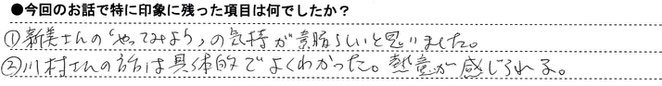 ●今回のお話で特に印象に残った項目は何でしたか？
①新美さんの「やってみよう」の気持が素晴らしいと思いました。
②川村さんの話は具体的でよくわかった。熱意が感じられる。